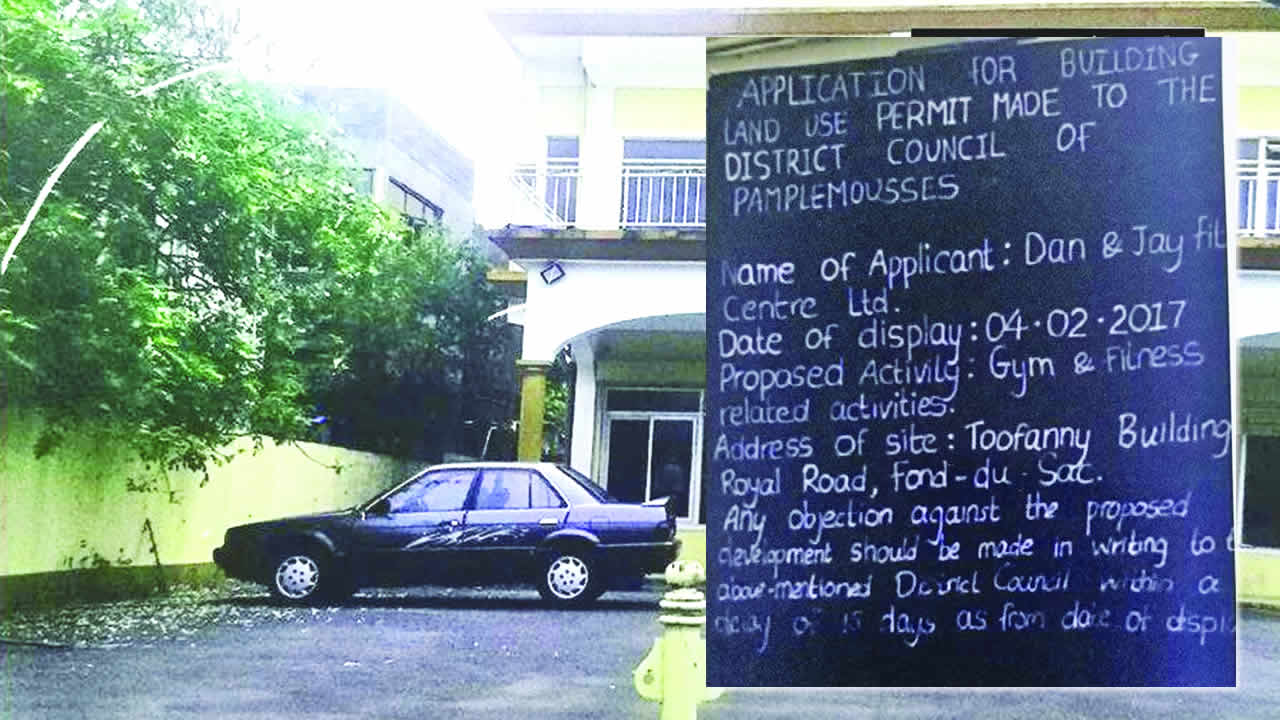 APPLICATION FOR BUILDING
LAND USE PERMIT MADE TO THE
DISTRICT COUNCIL OF
PAMPLEMOUSSES
Name of Applicant : Dan & Jay fit
Centre Ltd.
Date of display : 04.02.2017
Proposed Activity : Gym & Fitness
related activities.
Address of site : Toofanny Building
Royal Road, Fond-du-Sac.
Any objection against the proposed
development should be made in writing to t
above-mentioned District Council within a
delay of 15 days as from date of displ